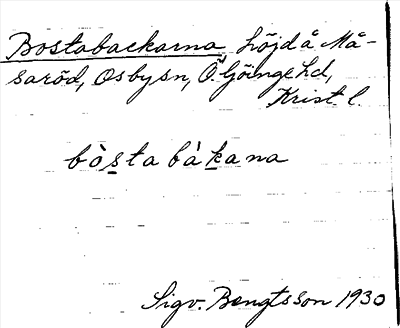 Bostabackarna höjd å Må-
saröd, Osbysn, Ö. Göinge hd,
Krist l.
bòsta bàkana
Sigv. Bengtsson 1930